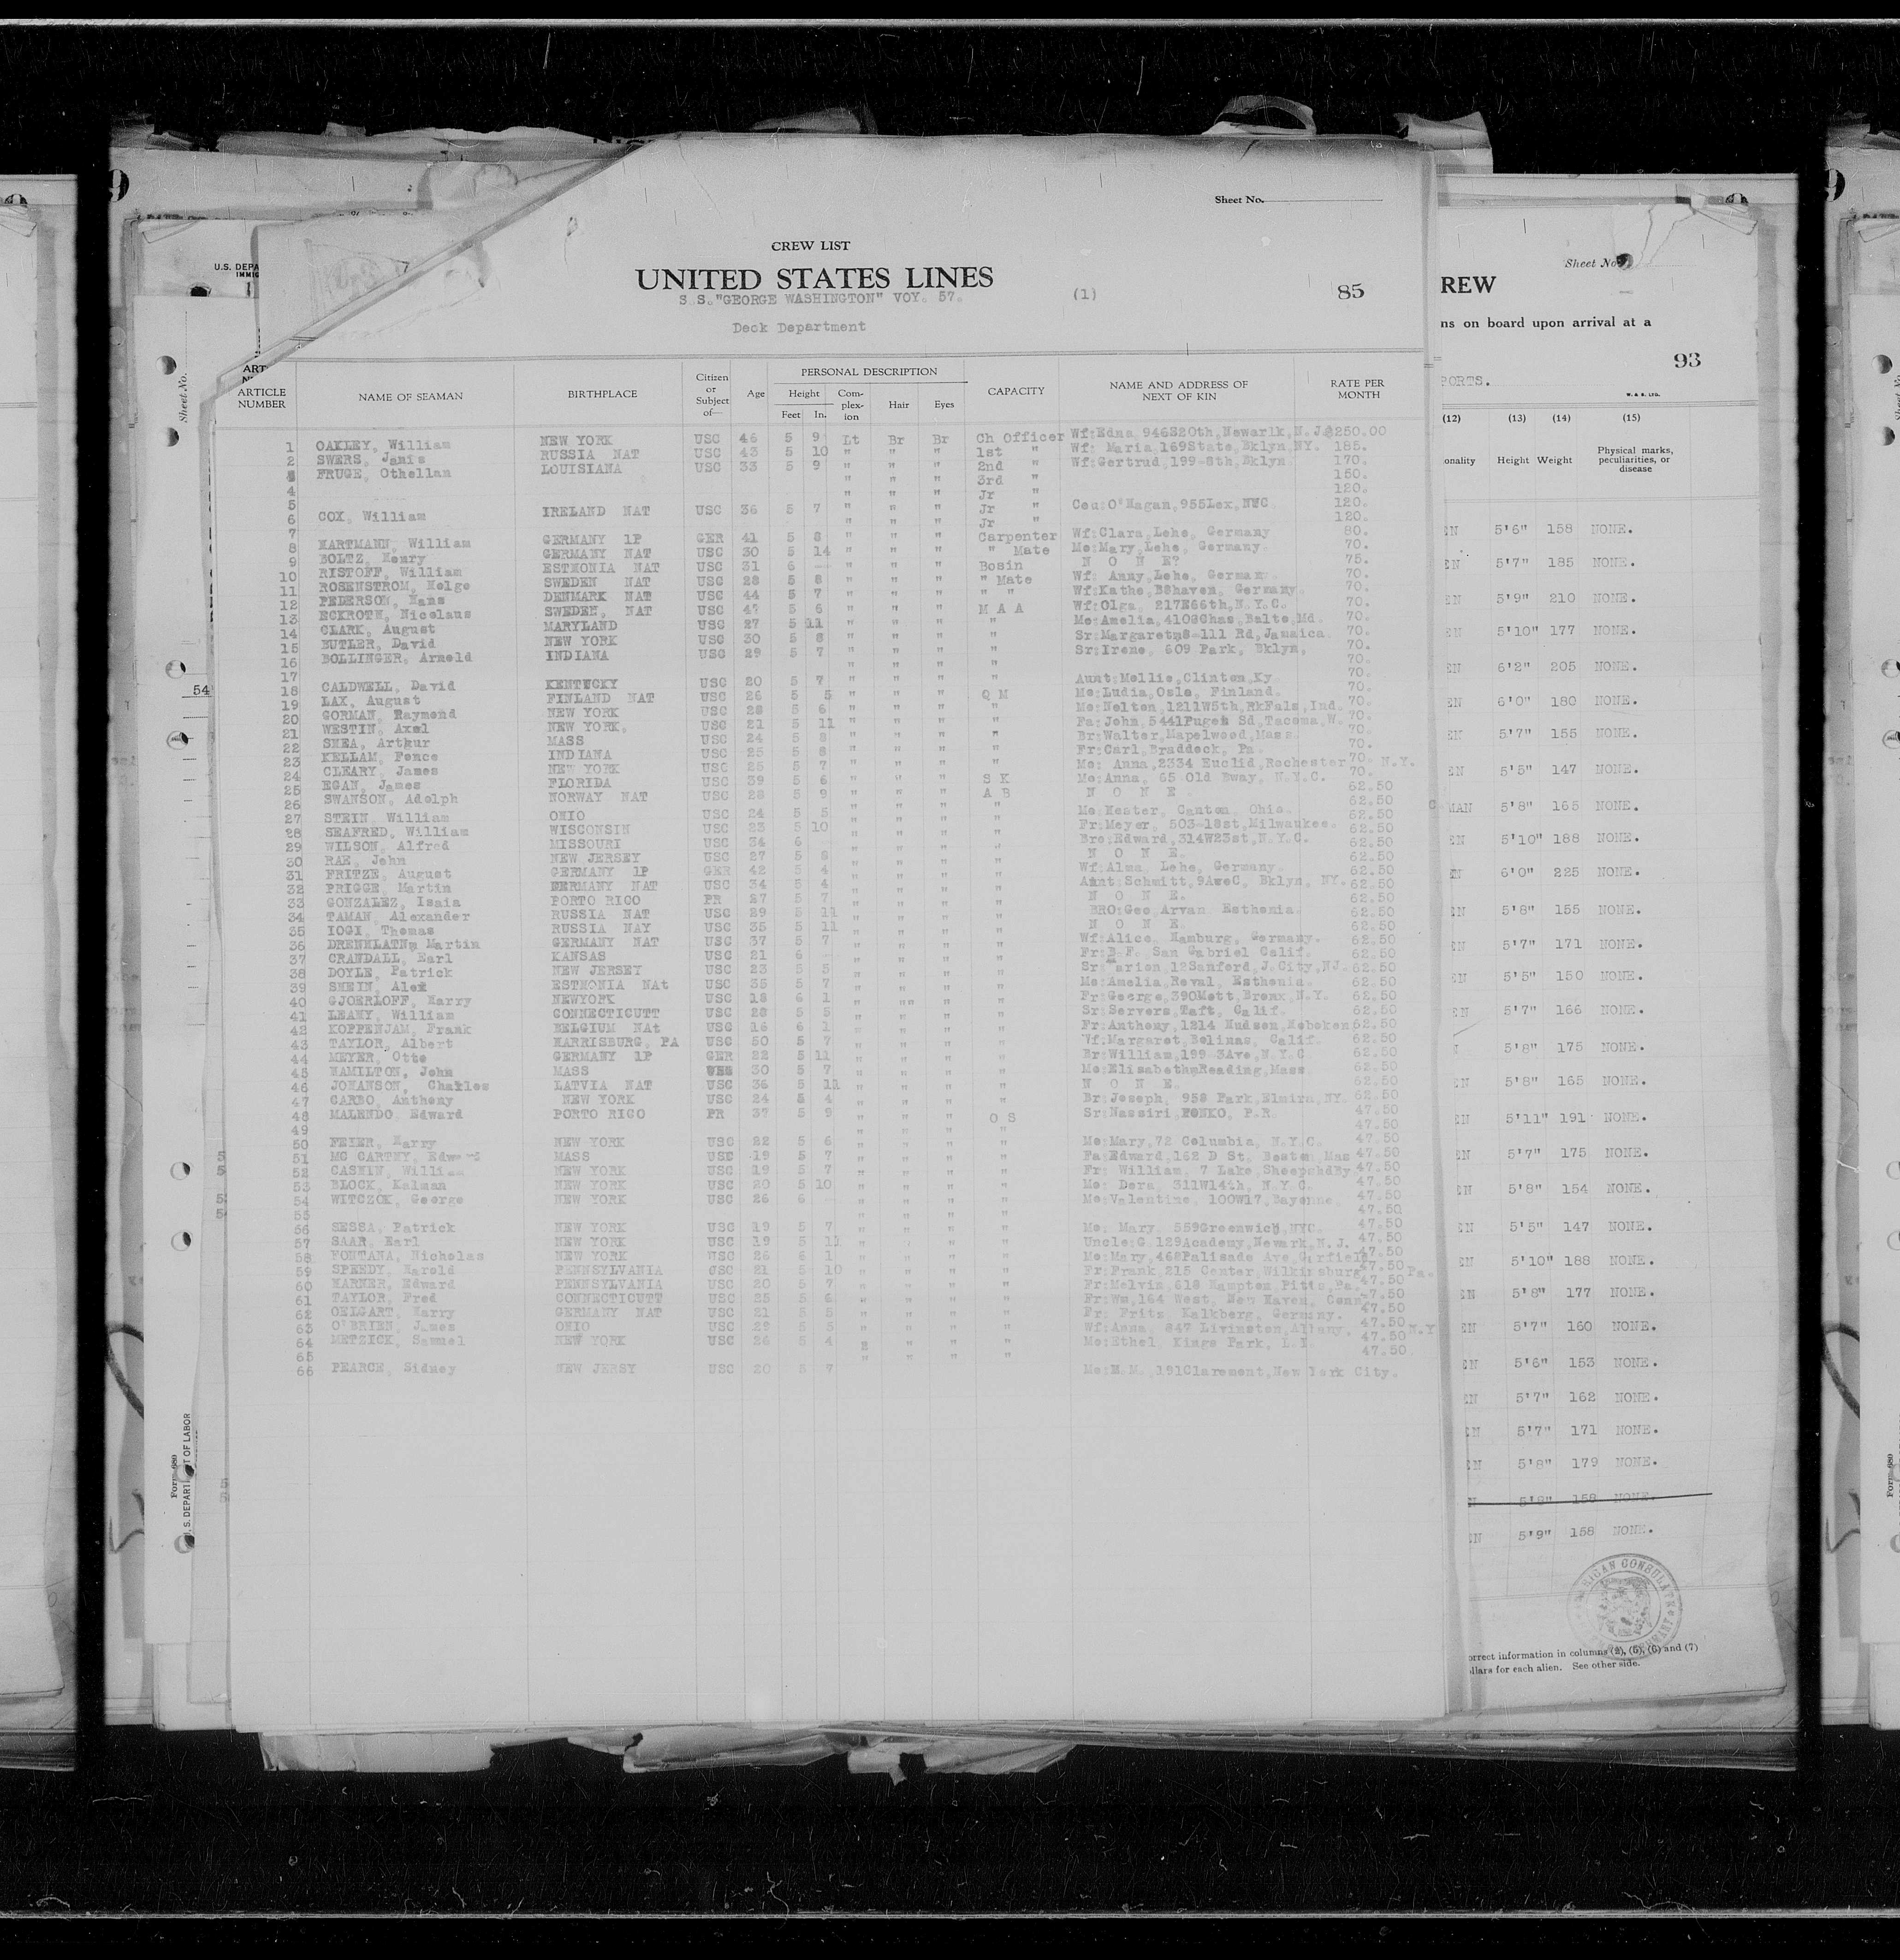 Sheet No.
CREW LIST
UNITED STATES LINES
S.S."GEORGE WASHINGTON" VOY. 57. (1) 85
Deck Department
ARTICLE NUMBER NAME OF SEAMAN BIRTHPLACE Citizen or Subject of— Age PERSONAL DESCRIPTION Height Feet In. Complexion Hair Eyes CAPACITY NAME AND ADDRESS OF NEXT OF KIN RATE PER MONTH
1 OAKLEY, William NEW YORK USC 46 5 9 Lt Br Br Ch Officer Wf:Edna 946S20th,Newarlk,N.J. $250.00
2 SWERS, Janis RUSSIA NAT USC 43 5 10 " " " 1st " Wf: Maria,169State,Bklyn NY. 185.
FRUGE, Othellan LOUISIANA USC 33 5 9 " " " 2nd " Wf:Gertrud,199-8th,Bklyn 170.
4 " " " 3rd " 150.
5 " " " Jr " 120.
6 COX, William IRELAND NAT USC 36 5 7 " " " Jr " Cou:O'Hagan,955Lex,NYC 120.
7 " " " Jr " 120.
8 HARTMANN, William GERMANY 1P GER 41 5 8 " " " Carpenter Wf:Clara,Lehe, Germany 80.
9 BOLTZ, Henry GERMANY NAT USC 30 5 14 " " " " Mate Mo:Mary,Lehe, Germany 70.
10 RISTOFF, William ESTHONIA NAT USC 31 6 " " " Bosin N O N E? 75.
11 ROSENSTROM, Helge SWEDEN NAT USC 28 5 8 " " " " Mate Wf: Anny,Lehe, German 70.
12 PEDERSON, Hans DENMARK NAT USC 44 5 7 " " " " " Wf:Kathe,BShaven, Germany. 70.
13 ECKROTH, Nicolaus SWEDEN, NAT USC 47 5 6 " " " M A A Wf:Olga, 217E66th,N.Y.C. 70.
14 CLARK, August MARYLAND USC 27 5 11 " " " " Mo:Amelia,410SChas,Balto,Md. 70.
15 BUTLER, David NEW YORK USC 30 5 8 " " " " Sr:Margaret,8-111 Rd,Jamaica. 70.
16 BOLLINGER, Arnold INDIANA USC 29 5 7 " " " " Sr:Irene, 609 Park, Bklyn, 70.
17 " " " " 70.
18 CALDWELL, David KENTUCKY USC 20 5 7 " " " " Aunt:Mollie,Clinton,Ky 70.
19 LAX, August FINLAND NAT USC 26 5 5 " " " Q M Mo:Ludia,Oslo, Finland. 70.
20 GORMAN, Raymond NEW YORK USC 28 5 6 " " " " Mo:Nelton,1211W5th,RkFals,Ind. 70.
21 WESTIN, Axel NEW YORK, USC 21 5 11 " " " " Fa:John,5441Puget Sd,Tacoma,W. 70.
22 SHEA, Arthur MASS USC 24 5 8 " " " " Br:Walter,Mapelwood,Mass. 70.
23 KELLAM, Pence INDIANA USC 25 5 8 " " " " Fr:Carl,Braddock, Pa. 70.
24 CLEARY, James NEW YORK USC 25 5 7 " " " " Mo: Anna,2334 Euclid,Rochester N.Y. 70.
25 EGAN, James FLORIDA USC 39 5 6 " " " S K Mo:Anna, 65 Old Bway, N.Y.C. 70.
26 SWANSON, Adolph NORWAY NAT USC 28 5 9 " " " A B N O N E . 62.50
27 STEIN, William OHIO USC 24 5 5 " " " " Mo:Hester, Canton, Ohio. 62.50
28 SEAFRED, William WISCONSIN USC 23 5 10 " " " " Fr:Meyer, 503-18st,Milwaukee. 62.50
29 WILSON, Alfred MISSOURI USC 34 6 " " " " Bro:Edward,314W23st,N.Y.C. 62.50
30 RAE, John NEW JERSEY USC 27 5 8 " " " " N O N E. 62.50
31 FRITZE, August GERMANY 1P GER 42 5 4 " " " " Wf:Alma, Lehe, Germany. 62.50
32 PRIGGE, Martin GERMANY NAT USC 34 5 4 " " " " Aunt:Schmitt,9AveC, Bklyn, NY. 62.50
33 GONZALEZ, Isaia PORTO RICO PR 27 5 7 " " " " N O N E. 62.50
34 TAMAN, Alexander RUSSIA NAT USC 29 5 11 " " " " BRO:Geo,Arvan Esthonia. 62.50
35 IOGI, Thomas RUSSIA NAY USC 35 5 11 " " " " N O N E. 62.50
36 Martin GERMANY NAT USC 37 5 7 " " " " Wf:Alice, Hamburg, Germany. 62.50
37 CRANDALL, Earl KANSAS USC 21 6 " " " " Fr:B.F. San Gabriel Calif. 62.50
38 DOYLE, Patrick NEW JERSEY USC 23 5 5 " " " " Sr:Marion,12Sanford,J.City,NJ. 62.50
39 SHEIN, Alex ESTHONIA NAt USC 35 5 7 " " " " Mo:Amelia,Reval, Esthonia. 62.50
40 GJOERLOFF, Harry NEWYORK USC 18 6 1 " "" " " Fr:George,390Mott,Bronx,N.Y. 62.50
41 LEAHY, William CONNECTICUTT USC 28 5 5 " " " " Sr:Servers,Taft, Calif. 62.50
42 KOPPENJAM, Frank BELGIUM NAt USC 16 6 1 " " " " Fr:Anthony,1214 Hudson,Hoboken 62.50
43 TAYLOR, Albert HARRISBURG, PA USC 50 5 7 " " " " Wf.Margaret,Bolinas, Calif. 62.50
44 MEYER, Otto GERMANY 1P GER 22 5 11 " " " " Br:William,199-3Ave,N.Y.C 62.50
45 HAMILTON, John MASS 30 5 7 " " " " Mo:Elisabeth,Reading,Mass 62.50
46 JOHANSON, Charles LATVIA NAT USC 36 5 11 " " " " N O N E. 62.50
47 CARBO, Anthony NEW YORK USC 24 5 4 " " " " Br:Joseph, 958 Park,Elmira,NY. 62.50
48 MALENDO, Edward PORTO RICO PR 37 5 9 " " " O S Sr:Nassiri, PONKO, P.R. 47.50
49 " " " " 47.50
50 FEIER, Harry NEW YORK USC 22 5 6 " " " " Mo:Mary,72 Columbia, N.Y.C. 47.50
51 MC CARTHY, Edward MASS USC 19 5 7 " " " " Fa:Edward,162 D St, Boston,Mas 47.50
52 CASHIN, William NEW YORK USC 19 5 7 " " " " Fr: William, 7 Lake,SheepshdBy 47.50
53 BLOCK, Kalman NEW YORK USC 20 5 10 " " " " Mo: Dora, 311W14th, N.Y.C. 47.50
54 WITCZOK, George NEW YORK USC 26 6 " " " " Mo:Valentine, 100W17,Bayonne. 47.50
55 " " " " 47.50
56 SESSA, Patrick NEW YORK USC 19 5 7 " " " " Mo: Mary, 559Greenwich,NYC. 47.50
57 SAAR, Earl NEW YORK USC 19 5 11 " " " " Uncle:G,129Academy,Newark,N.J. 47.50
58 FONTANA, Nicholas NEW YORK USC 26 6 1 " " " " Mo:Mary,468Palisade Ave,Garfield 47.50
59 SPEEDY, Harold PENNSYLVANIA USC 21 5 10 " " " " Fr:Frank,215 Center,Wilkinsburg Pa. 47.50
60 HARNER, Edward PENNSYLVANIA USC 20 5 7 " " " " Fr:Melvin,618 Hampton Pitts,Pa. 47.50
61 TAYLOR, Fred CONNECTICUTT USC 25 5 6 " " " " Fr:Wm,164 West, New Haven, Conn 47.50
62 OELGART, Harry GERMANY NAT USC 21 5 5 " " " " Fr: Fritz, Kalkberg, Germany. 47.50
63 O'BRIEN, James OHIO USC 29 5 5 " " " " Wf:Anna, 847 Livinston,Albany, N.Y 47.50
64 METZICK, Samuel NEW YORK USC 26 5 4 " " " " Mo:Ethel, Kings Park, L.I. 47.50
65 " " " " 47.50
66 PEARCE, Sidney NEW JERSY USC 20 5 7 Mo:M.M. 191Claremont,New York City.
Sheet No.
REW
ns on board upon arrival at a
93
PORTS.
(12) (13) (14) (15)
onality Height Weight Physical marks, peculiarities, or disease
EN 5'6" 158 NONE.
EN 5'7" 185 NONE.
EN 5'9" 210 NONE.
EN 5'10" 177 NONE.
EN 6'2" 205 NONE.
EN 6'0" 180 NONE.
EN 5'7" 155 NONE.
EN 5'5" 147 NONE.
MAN 5'8" 165 NONE.
EN 5'10" 188 NONE.
EN 6'0" 225 NONE.
EN 5'8" 155 NONE.
EN 5'7" 171 NONE.
EN 5'5" 150 NONE.
EN 5'7" 166 NONE.
5'8" 175 NONE.
EN 5'8" 165 NONE.
EN 5'11" 191 NONE.
EN 5'7" 175 NONE.
EN 5'8" 154 NONE.
EN 5'5" 147 NONE.
EN 5'10" 188 NONE.
EN 5'8" 177 NONE.
EN 5'7" 160 NONE.
EN 5'6" 153 NONE.
EN 5'7" 162 NONE.
EN 5'7" 171 NONE.
EN 5'8" 179 NONE.
N 5'8" 158 NONE.
EN 5'9" 158 NONE.
orrect information in columns (2), (5), (6) and (7)
llars for each alien. See other side.
U.S. DEPA
IMMIG
Sheet No.
54
Form 680
U. S. DEPARTMENT OF LABOR